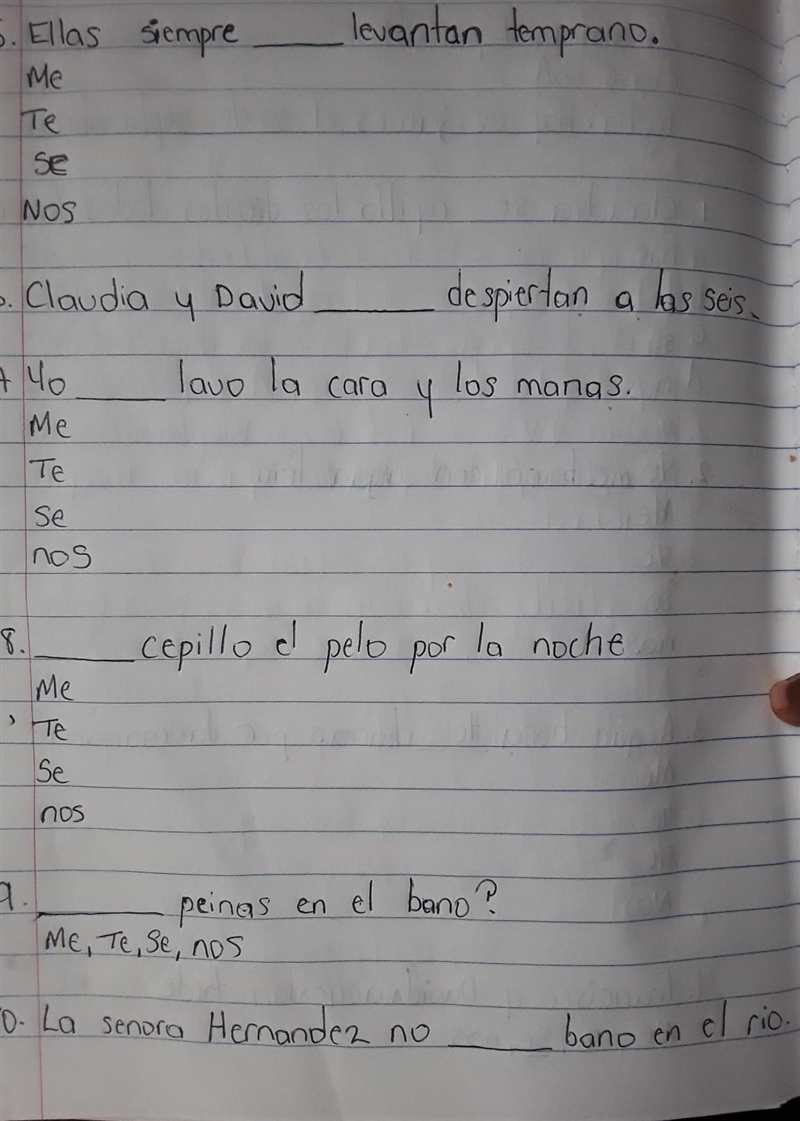 5. Ellas siempre ____ levantan temprano.
Me
Te
Se
Nos
6. Claudia y David ______ despiertan a las seis.
7 Yo _____ lavo la cara y los manas.
Me
Te
Se
nos
8. _____ cepillo el pelo por la noche
Me
Te
Se
nos
9. ______ peinas en el bano?
Me, Te, Se, nos
10. La senora Hernandez no _____ bano en el rio.